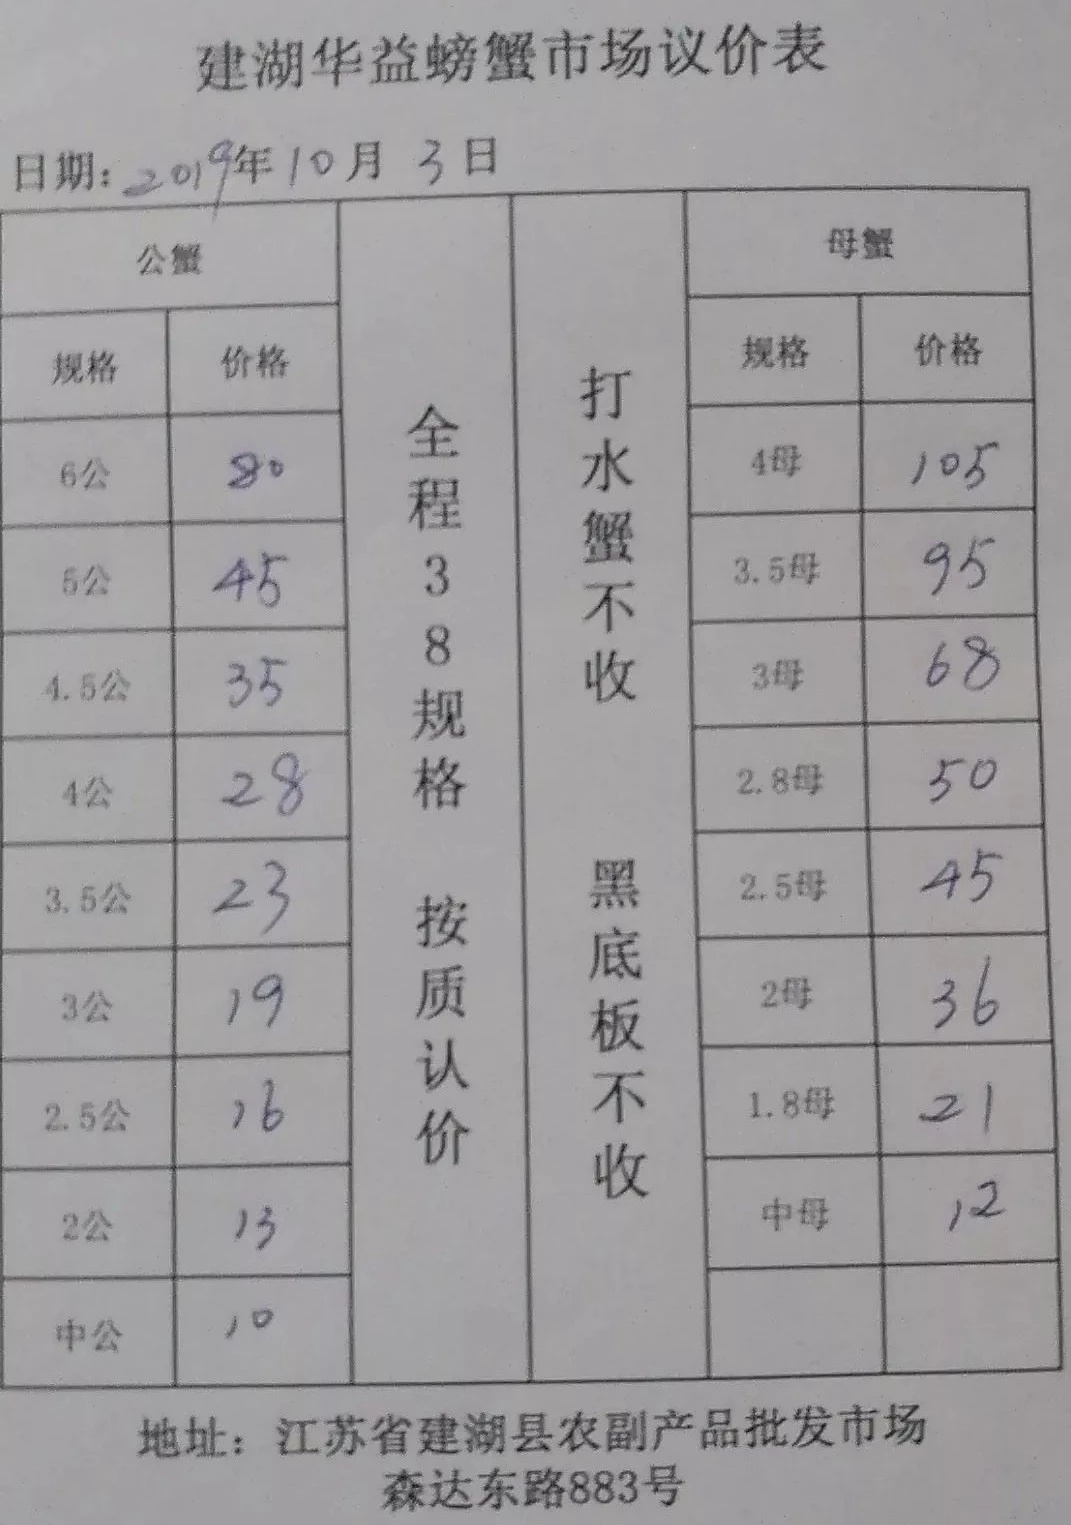 建湖华益螃蟹市场议价表
日期: 2019年10月3日
公蟹
母蟹
规格 价格
规格 价格
6公 80
4母 105
5公 45
3.5母 95
4.5公 35
3母 68
4公 28
2.8母 50
3.5公 23
2.5母 45
3公 19
2母 36
2.5公 16
1.8母 21
2公 13
中母 12
中公 10
全程38规格 按质认价
打水蟹不收 黑底板不收
地址: 江苏省建湖县农副产品批发市场
森达东路883号